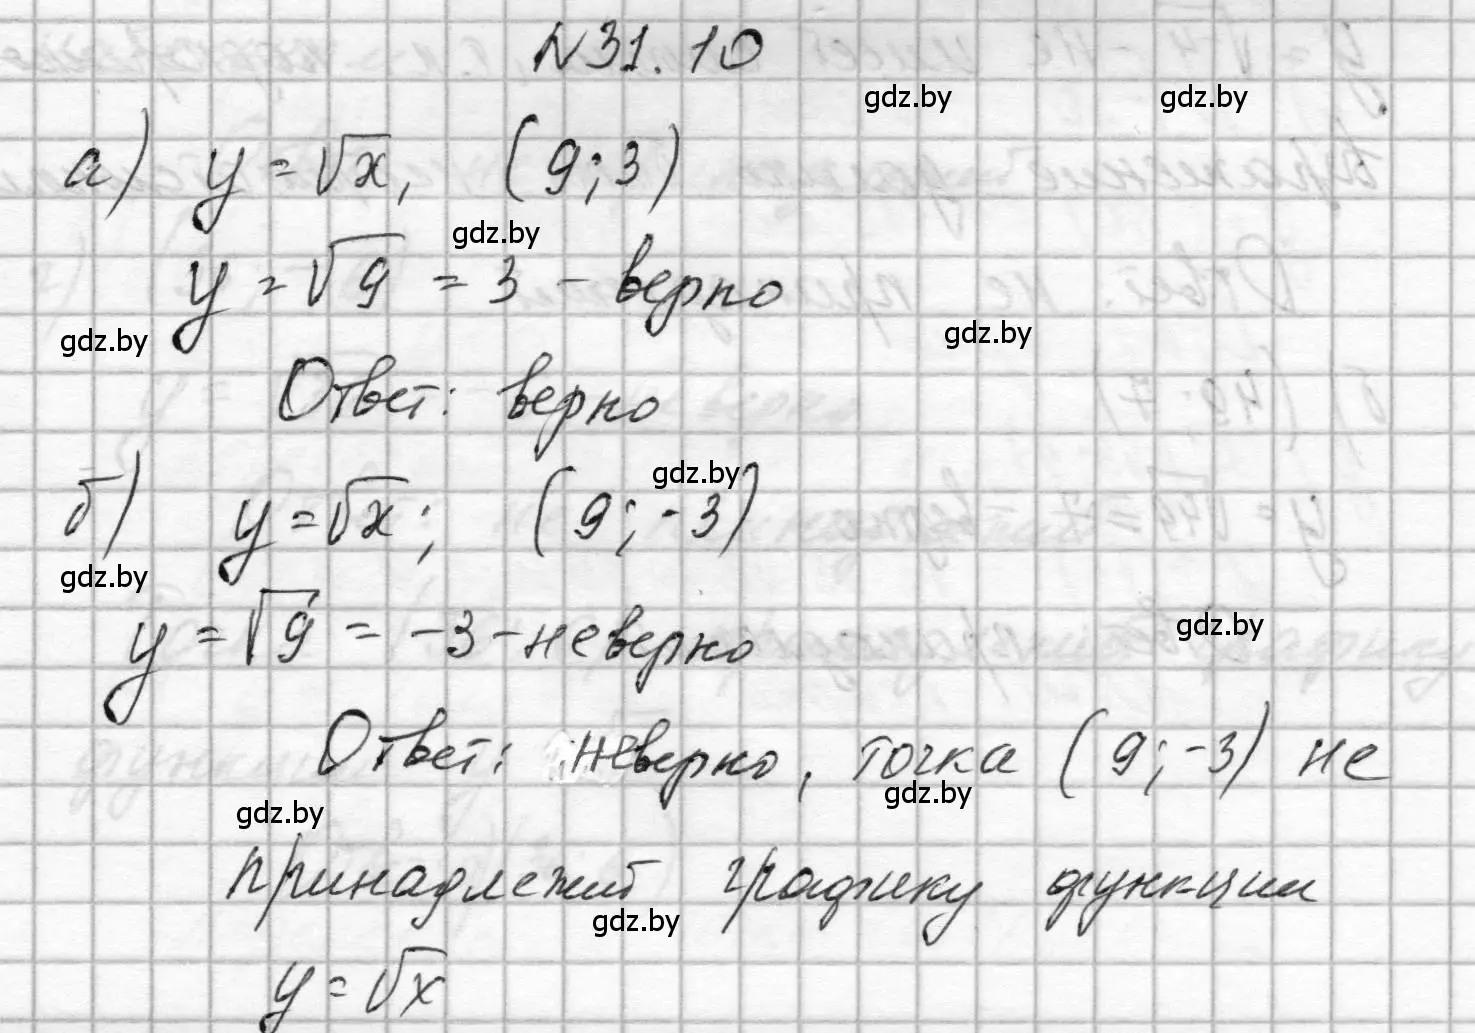 N31.10
gdz.by gdz.by
а) y = √x, (9; 3)
gdz.by
y = √9 = 3 - верно
gdz.by gdz.by
Ответ: верно
gdz.by
б) y = √x; (9; -3)
gdz.by
y = √9 = -3 - неверно
gdz.by
Ответ: неверно, точка (9; -3) не
gdz.by gdz.by
принадлежит графику функции
gdz.by
y = √x